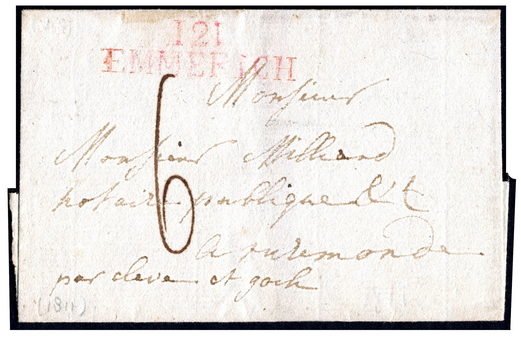 121
EMMERICH
Monsieur
6
Monsieur Milliard
notaire publique &t
A ruremonde
par cleve et goch
(1811)